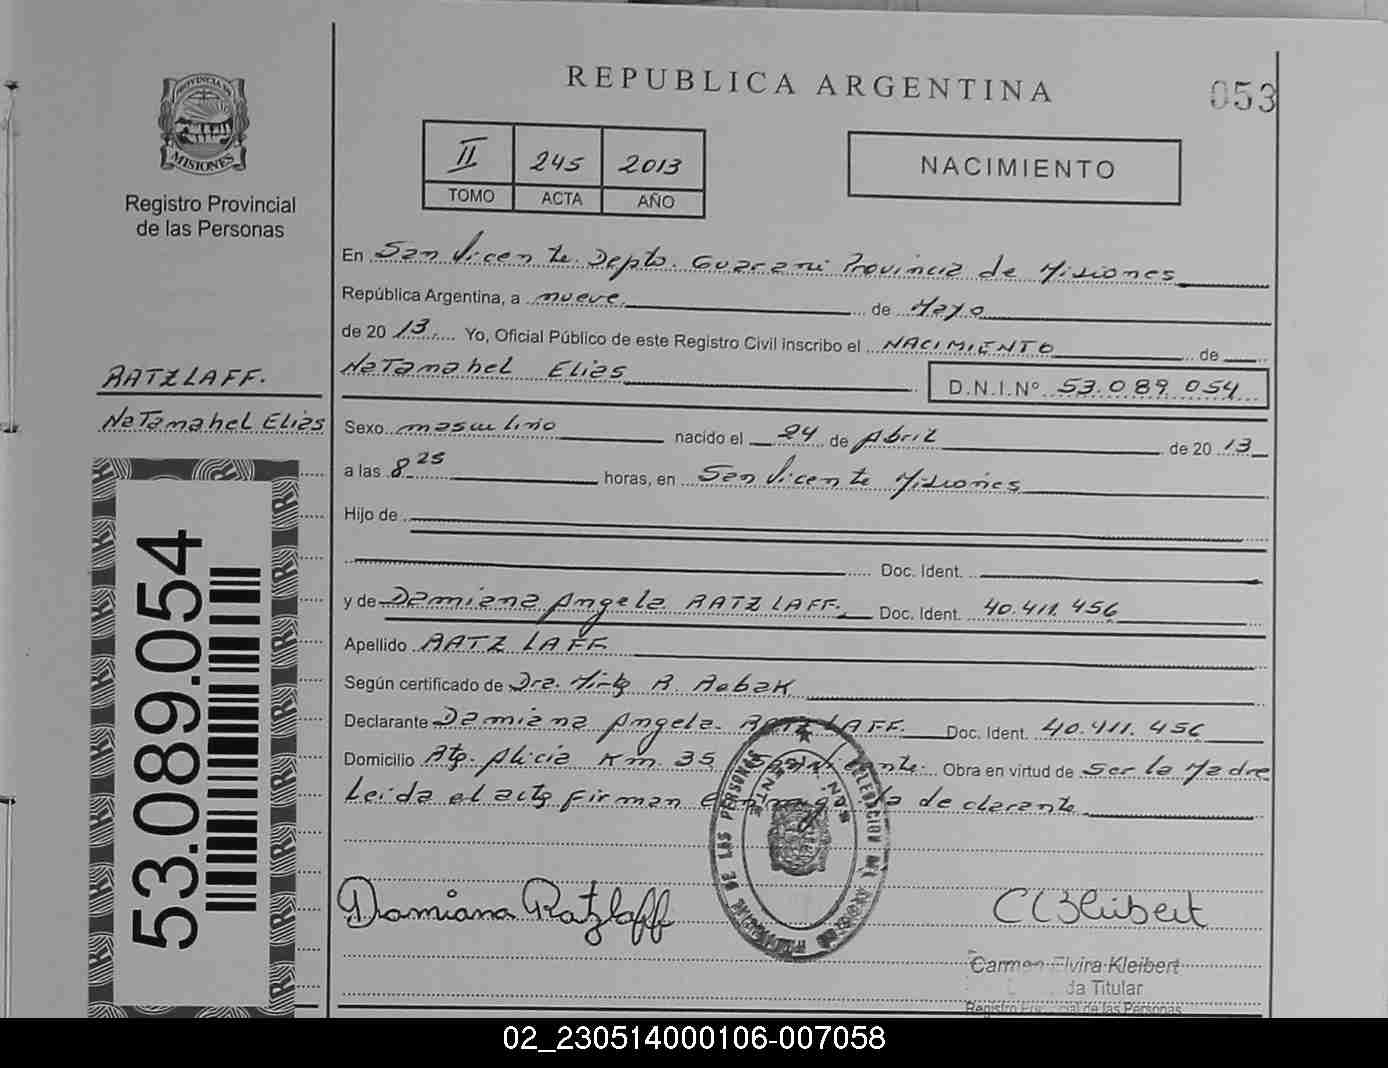 REPUBLICA ARGENTINA
053
PROVINCIA DE
MISIONES
Registro Provincial
de las Personas
II 245 2013
TOMO ACTA AÑO
NACIMIENTO
En San Vicente. Depto. Guarani Provincia de Misiones
República Argentina, a nueve de Mayo
de 20 13 Yo, Oficial Público de este Registro Civil inscribo el NACIMIENTO de
NaTamahel Elias D.N.I.Nº 53.089.054
RATZLAFF.
NaTamahel Elias
Sexo masculino nacido el 24 de Abril de 20 13
a las 8 25 horas, en San Vicente Misiones
Hijo de
Doc. Ident.
y de Damiana Angela RATZLAFF. Doc. Ident. 40.411.456
Apellido RATZLAFF
Según certificado de Dra. Mirta R. Robak
Declarante Damiana Angela RATZLAFF. Doc. Ident. 40.411.456
Domicilio Rta. Alicia Km. 35 San Vicente. Obra en virtud de Ser la Madre
Leida el acta firman conmigo la declarante
53.089.054
DELEGACION DEL REGISTRO PROVINCIAL DE LAS PERSONAS
SAN VICENTE
Damiana Ratzlaff
C Kleibert
Carmen Elvira Kleibert
da Titular
Registro Provincial de las Personas
02_230514000106-007058